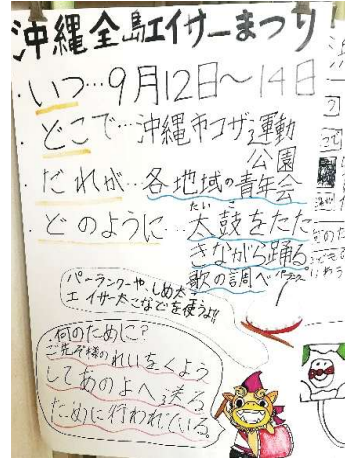 沖縄全島エイサーまつり
・いつ…9月12日〜14日
・どこで…沖縄市コザ運動
公園
・だれが…各地域の青年会
・どのように…太鼓をたた
たいこ
きながら踊る
歌の調べ
パーランクーや、しめ太こ
エイサー太こなどを使うよ!!
何のために?
ご先ぞ様のれいをくよう
してあのよへ送る
ために行われている。